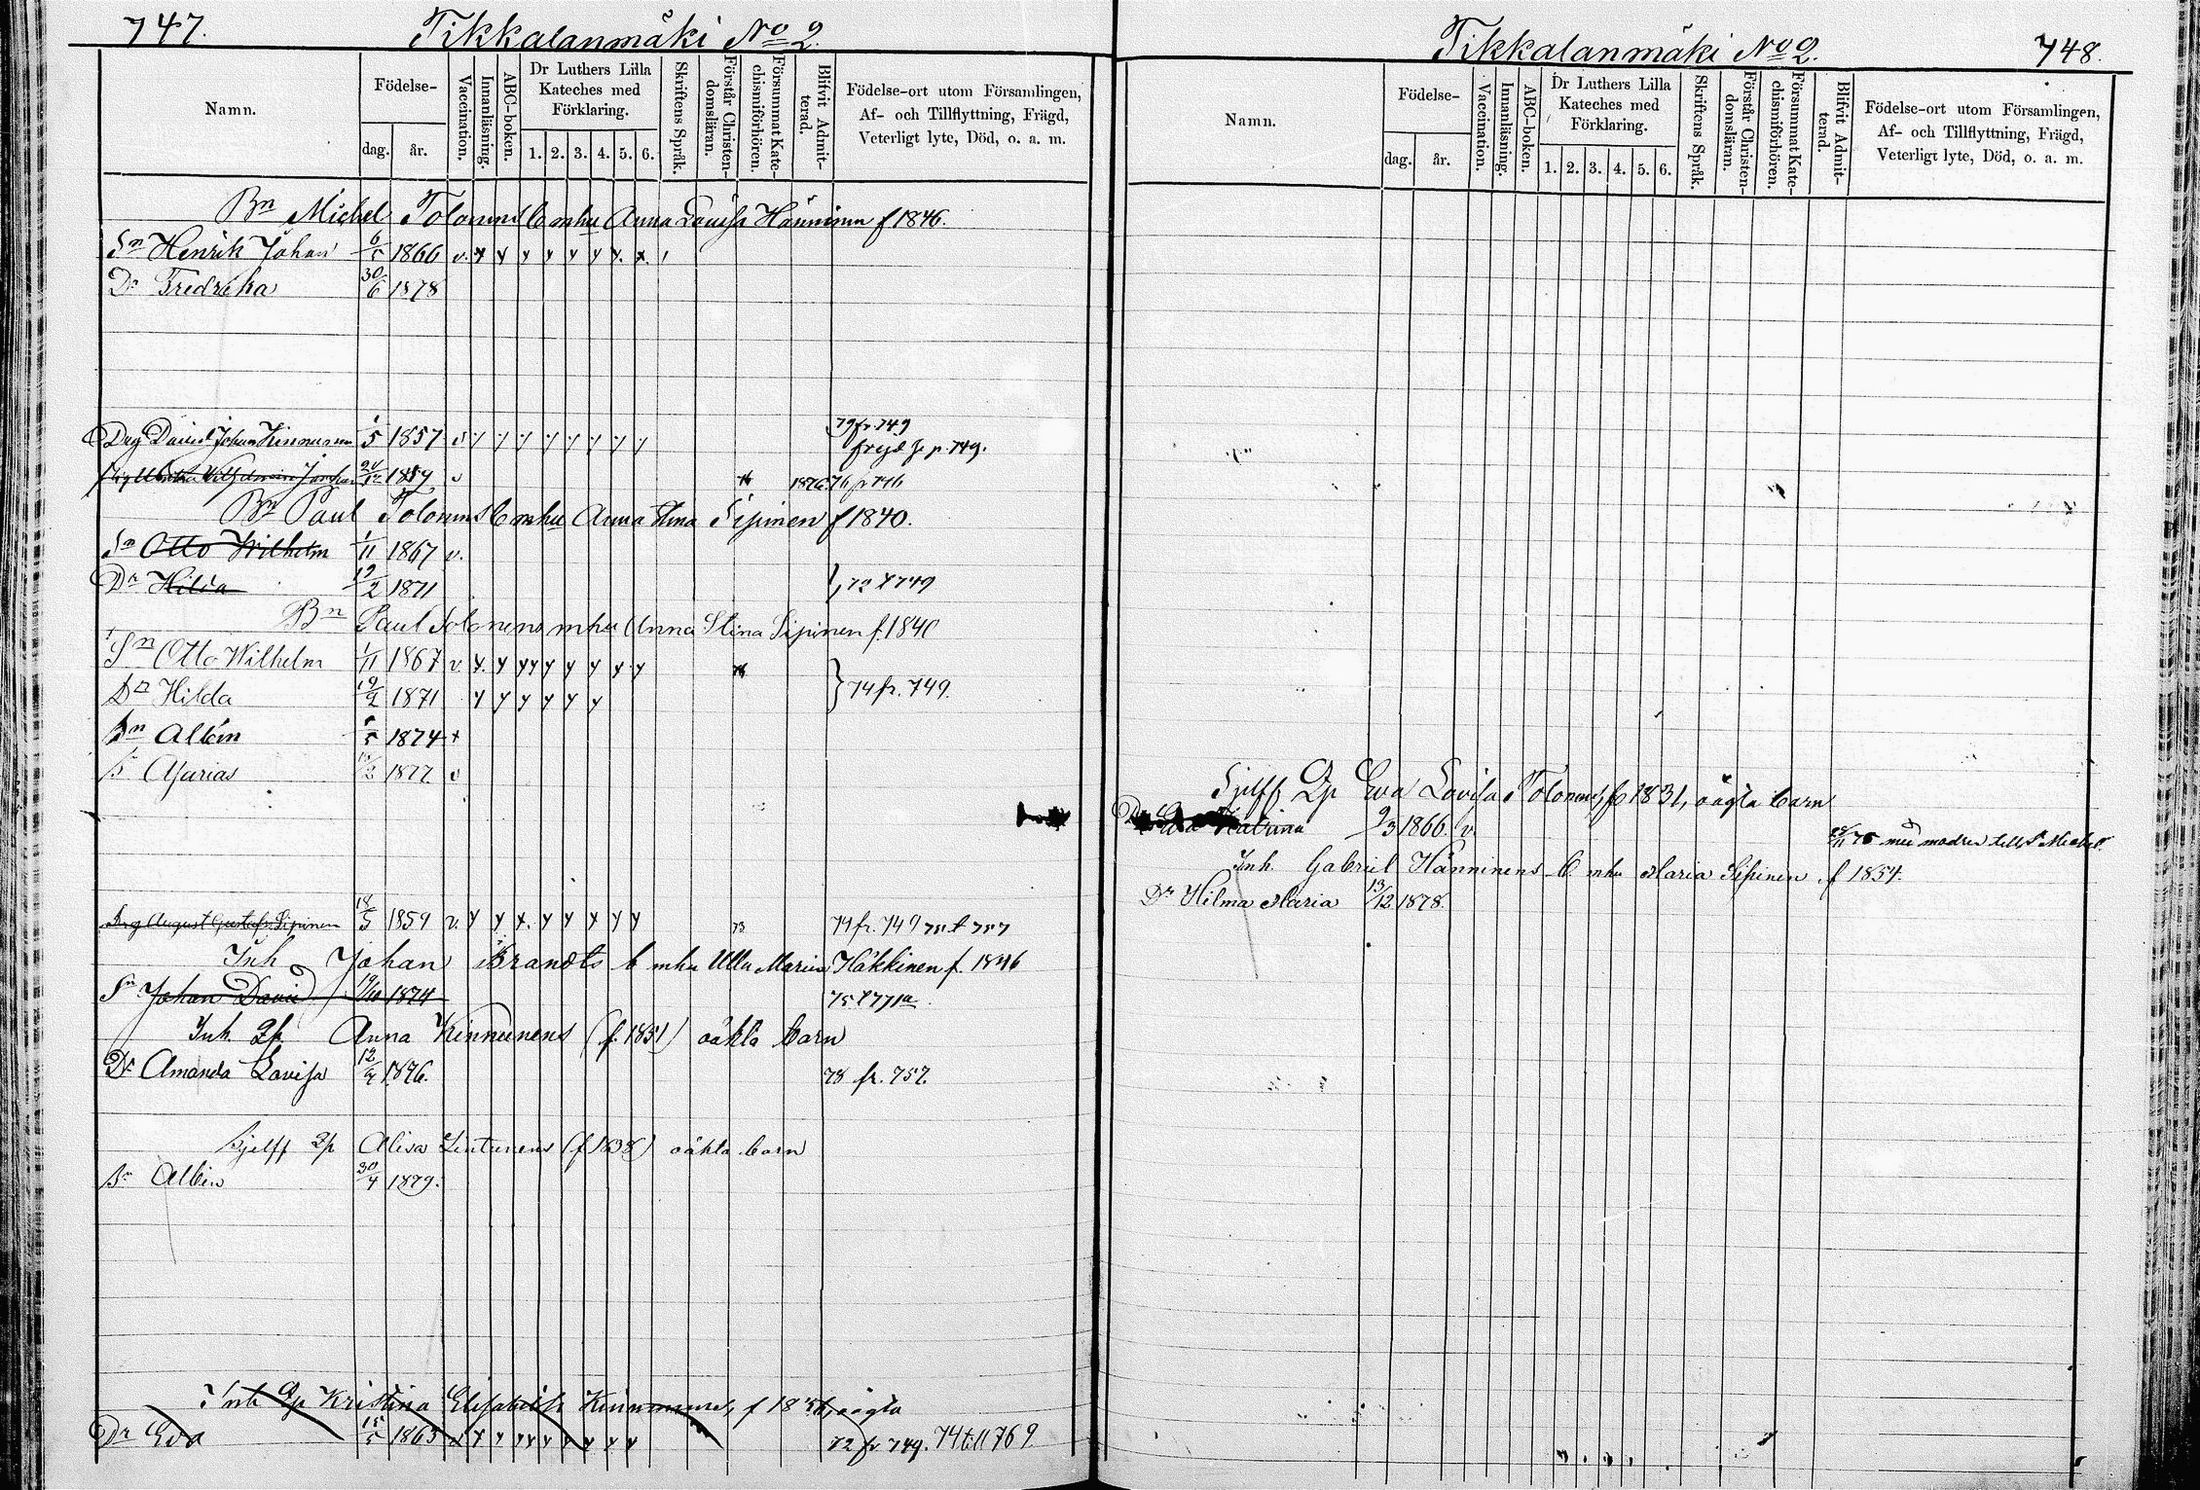 747.
Tikkalanmäki No 2.
Namn.
Födelse-
dag.
år.
Vaccination.
Innanläsning.
ABC-boken.
Dr Luthers Lilla Kateches med Förklaring.
1. 2. 3. 4. 5. 6.
Skriftens Språk.
Förstår Christen-domsläran.
Försummat Kate-chismiförhören.
Blifvit Admit-terad.
Födelse-ort utom Församlingen,
Af- och Tillflyttning, Frägd,
Veterligt lyte, Död, o. a. m.
Bn Michel Tolonens b mhu Anna Lovisa Hänninen f 1846.
Sn Henrik Johan 6/5 1866 v. x y y y y y y. x.
Dr Fredrika 30/6 1878
79 fr 749
Drg David Johan Kinnunen 1/5 1857 v y y y y y y y y frejd se p. 749.
1859 v 1876 76 fr 746
Bn Paul Tolonens b mhu Anna Stina Sipinen f 1840.
Sn Otto Wilhelm 1/11 1867 v.
Dr Hilda 19/2 1871 } 72 t 749
Bn Paul Tolonens mhu Anna Stina Sipinen f. 1840
Sn Otto Wilhelm 1/11 1867 v. y. y yy y y y y y
Dr Hilda 19/2 1871 y y y y y y } 74 fr. 749.
Sn Albin 1/5 1874 +
S. 1877 v
Drg August Gustaf Sipinen 18/5 1859 v. y y x. y y y y y 73 74 fr. 749 75 t 757
Inh Johan Brandts b mhu Ulla Maria Häkkinen f. 1846
Sn Johan David 19/10 1874 75 t 771a.
Inh. Qp Anna Kinnunens (f. 1851) oäkta barn
Dr Amanda Lovisa 12/4 1876. 78 fr. 757.
Sjelff Qp Alisa (f 1838) oäkta barn
Sn Albin 30/4 1879.
Inh Qp Kristina Elisabeth Kinnunens, f 1836, oägta
Dr Eva 15/5 1863 v y y yy y y y y 72 fr 749. 74 till 769
Tikkalanmäki No 2.
748.
Namn.
Födelse-
dag.
år.
Vaccination.
Innanläsning.
ABC-boken.
Dr Luthers Lilla Kateches med Förklaring.
1. 2. 3. 4. 5. 6.
Skriftens Språk.
Förstår Christen-domsläran.
Försummat Kate-chismiförhören.
Blifvit Admit-terad.
Födelse-ort utom Församlingen,
Af- och Tillflyttning, Frägd,
Veterligt lyte, Död, o. a. m.
Sjelff Qp Eva Lovisa Tolonens, f 1831, oägta barn
Katrina 9/3 1866. v. 75 med modren till St Michel.
Inh. Gabriel Hänninens b mhu Maria Sipinen f 1854.
Dr Hilma Maria 13/12 1878.